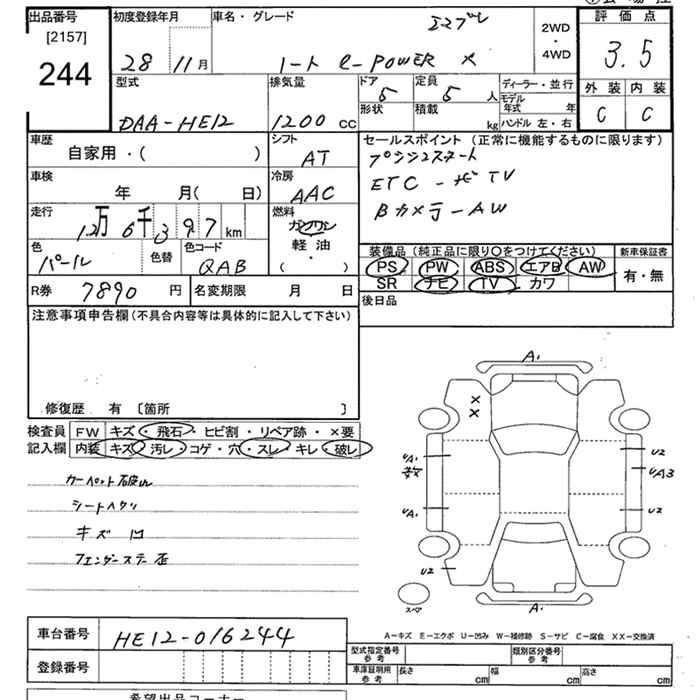 出品番号
[2157]
244
初度登録年月
28 11月
車名・グレード
ノート e-POWER X
2WD
・
4WD
評価点
3.5
外装 内装
C C
型式
DAA-HE12
排気量
1200 cc
ドア 5
形状
定員 5 人
積載 kg
ディーラー・並行
モデル年式 年
ハンドル 左・右
車歴
自家用・( )
シフト
AT
セールスポイント (正常に機能するものに限ります)
プッシュスタート
ETC ーナビTV
Bカメラ-AW
車検
年 月( 日)
冷房
AAC
走行
12万6千397km
燃料
ガソリン
軽油・
( )
色
パール
色替
色コード
QAB
装備品 (純正品に限り〇をつけてください) 新車保証書
PS PW ABS エアB AW 有・無
SR ナビ TV カワ
R券 7890円 名変期限 月 日
後日品
注意事項申告欄(不具合内容等は具体的に記入して下さい)
修復歴 有 〔箇所 〕
検査員 FW キズ・飛石・ヒビ割・リペア跡・×要
記入欄 内装 キズ・汚レ・コゲ・穴・スレ・キレ・破レ
カーペット破レ
シートヘタリ
キズ 凹
フェンダーステー歪
A1
X
X
UA1
U2
UA3
UA1
U2
U2
A1
スペア
A-キズ E-エクボ U-凹み W-補修跡 S-サビ C-腐食 XX-交換済
車台番号 HE12-016244
登録番号
型式指定番号 参考
類別区分番号 参考
車庫証明用 参考 長さ cm 幅 cm 高さ cm
希望出品コーナー